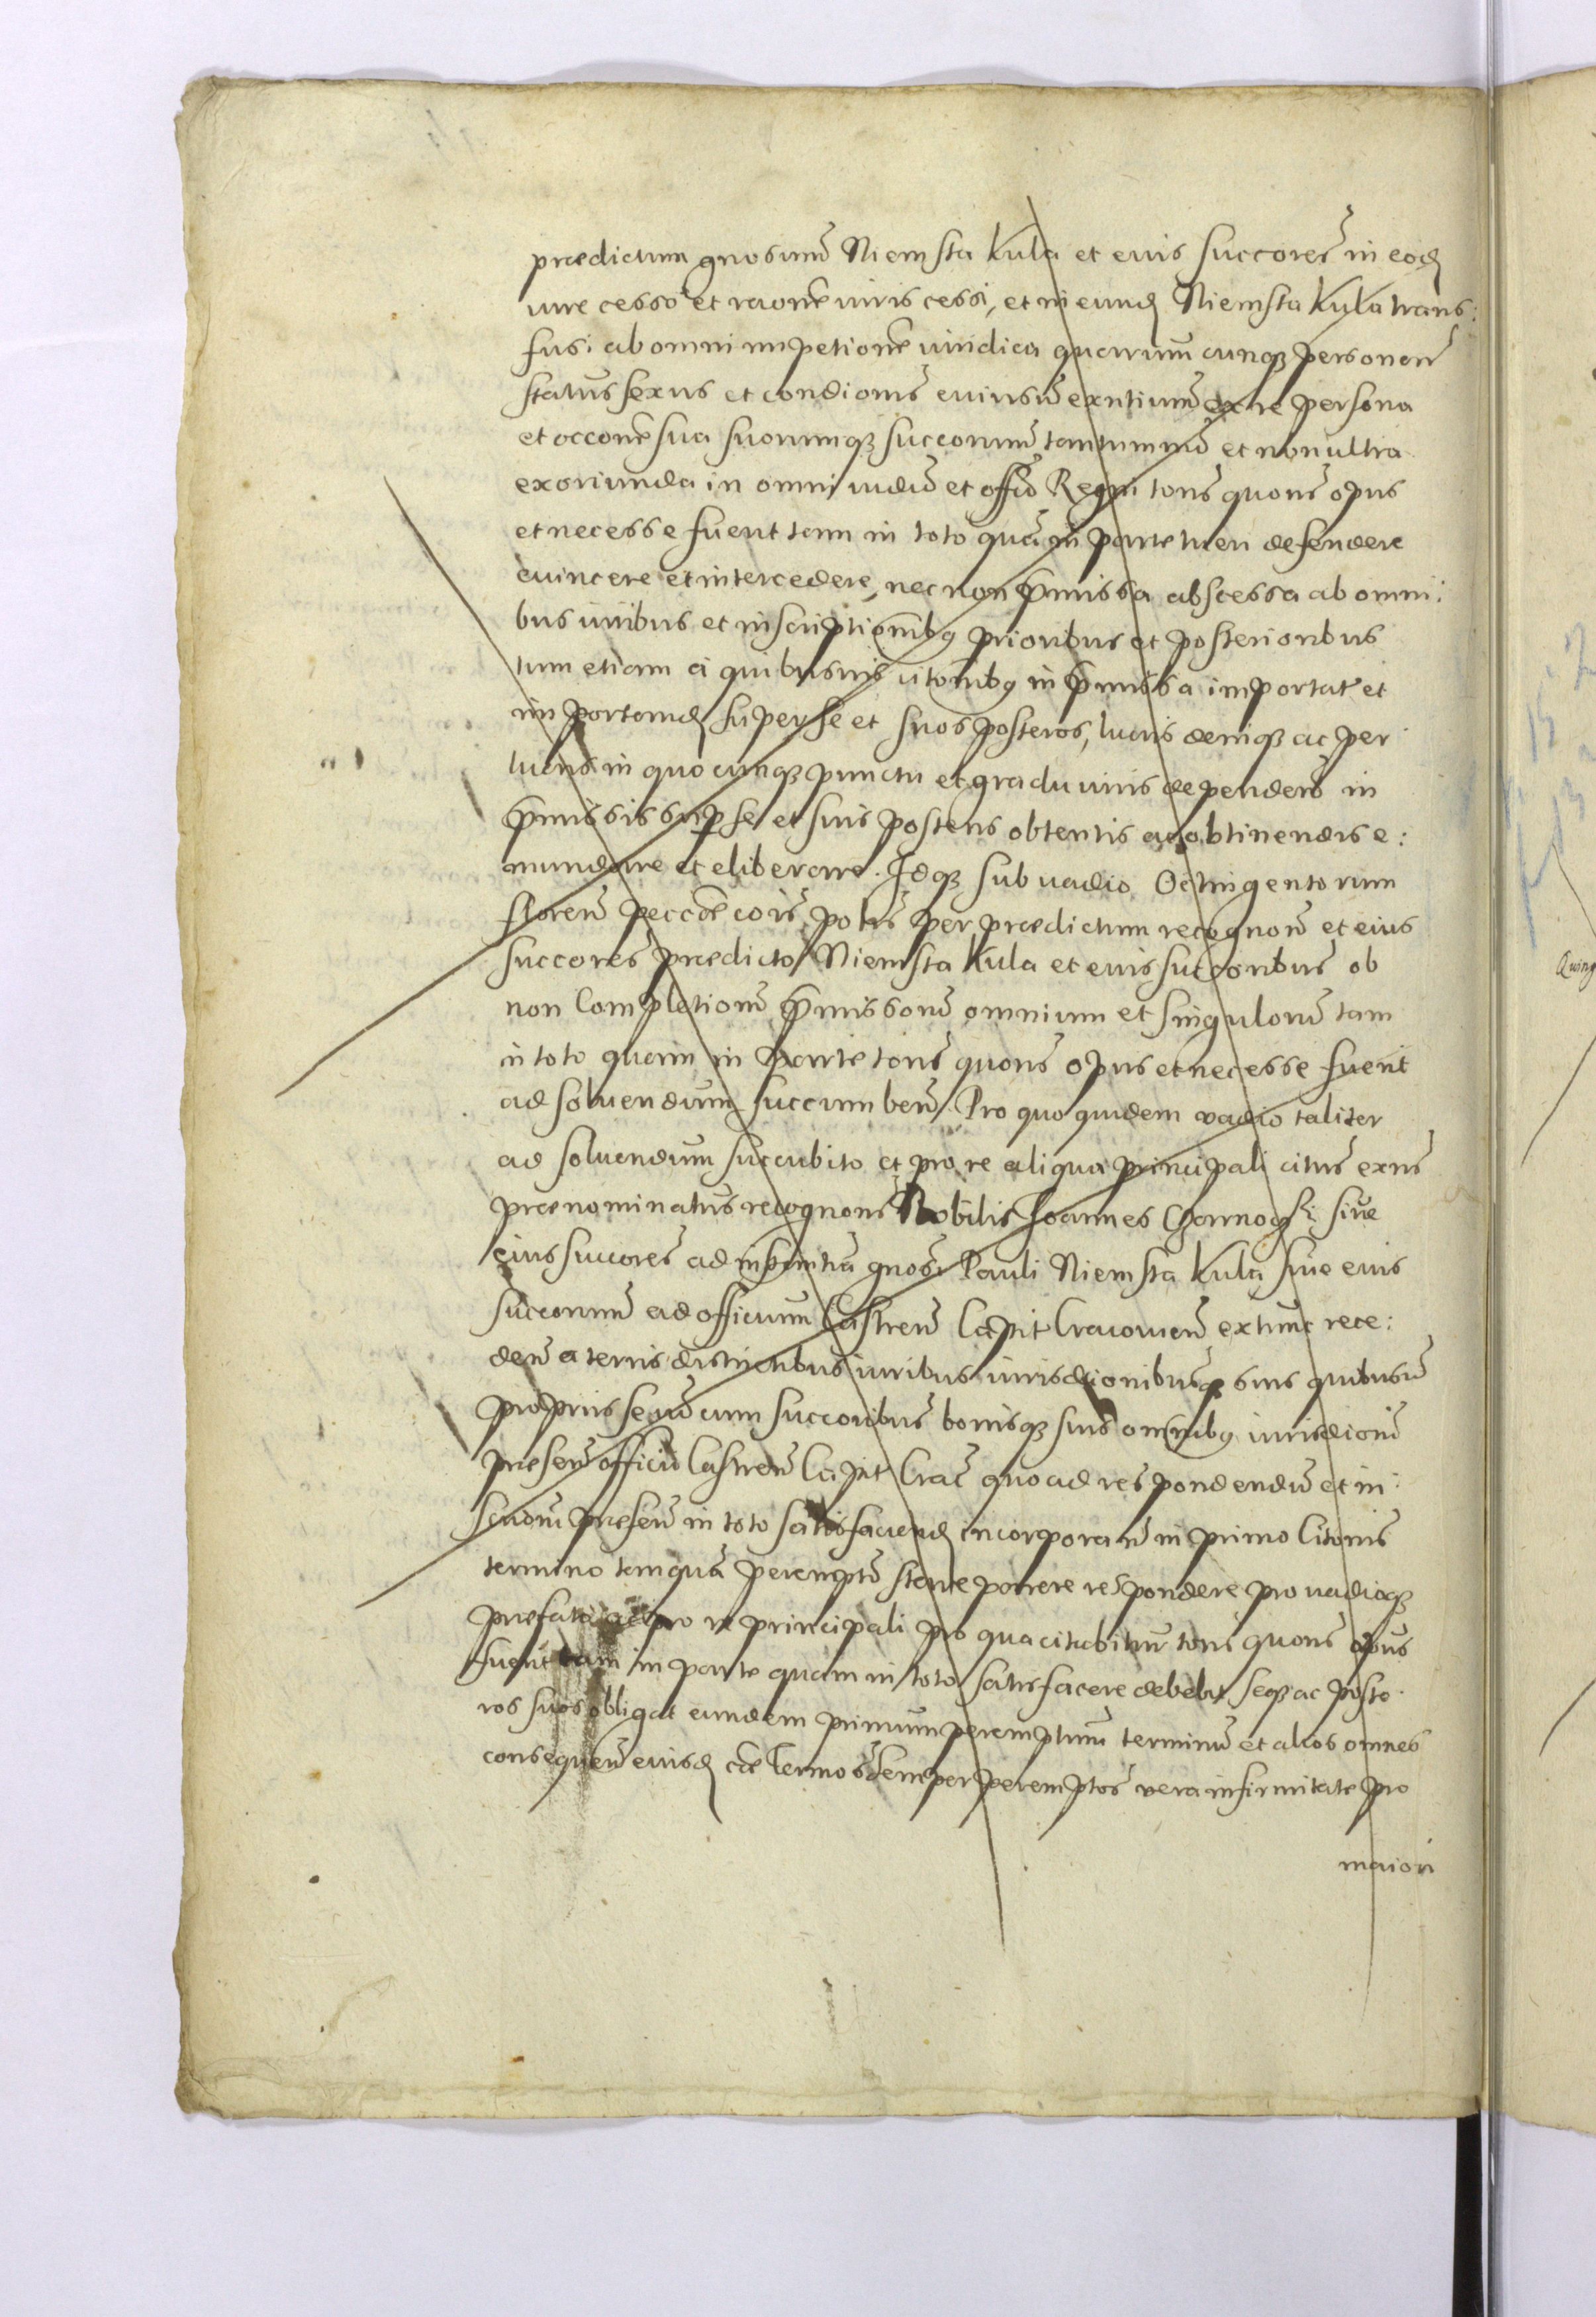 prædictum gnosum Niemsta Kula et eius succores in eod
iure cesso et raone iuris cessi, et in eund Niemsta Kula trans:
fusi ab omni impetione iuridica quarumcunq personar
status sexus et condionis cuiusuis exntium ex re persona
et occone sua suorumq succorum tantummo et non ultra
exoriunda in omni iudio et offo Regni tons quons opus
et necesse fuerit tam in toto qua in parte tueri defendere
euincere et intercedere, nec non pmissa abscessa ab omni:
bus iuribus et inscriptionibq prioribus et posterioribus
tum etiam a quibusuis uitonibq in pmissa importat et
importand super se et suos posteros, lucris deniq ac per
lucris in quocunq punctu et gradu iuris dependen in
pmissis sup se et suis posteris obtentis ac obtinendis e:
mundare et eliberare. Idq sub vadio Octingentorum
floren peccoe cois polis per prædictum recognon et eius
succores prædicto Niemsta Kula et eius succoribus ob
non Completionem pmissorum omnium et singulorum tam
in toto quam in parte tons quons opus et necesse fuerit
ad soluendum succumben. Pro quo quidem vadio taliter
ad soluendum succubito et pro re aliqua principali citus exns
prænominatus recognons Nobilis Joannes siue
eius succores ad instantia gnosi Pauli Niemsta Kula siue eius
succorum ad officium Castren Capit Cracouien extunc rece:
den a terris districtibus iuribus iurisdionibusq suis quibusuis
propriis se cum succoribus bonisq suis omnibq iurisdioni
presen officii Castren Capit Crac quoad respondendu et in:
scrioni presen in toto satisfaciend incorporan in primo Citonis
termino tanqua perempto stare parere respondere pro vadioq
prefato ac pro re principali pro qua citabitur tons quons opus
fuerit tam in parte quam in toto satisfacere debebit seq ac poste
ros suos obligat eundem primum peremptum terminum et alios omnes
consequen eiusd cae termos semper peremptos vera infirmitate pro
maiori